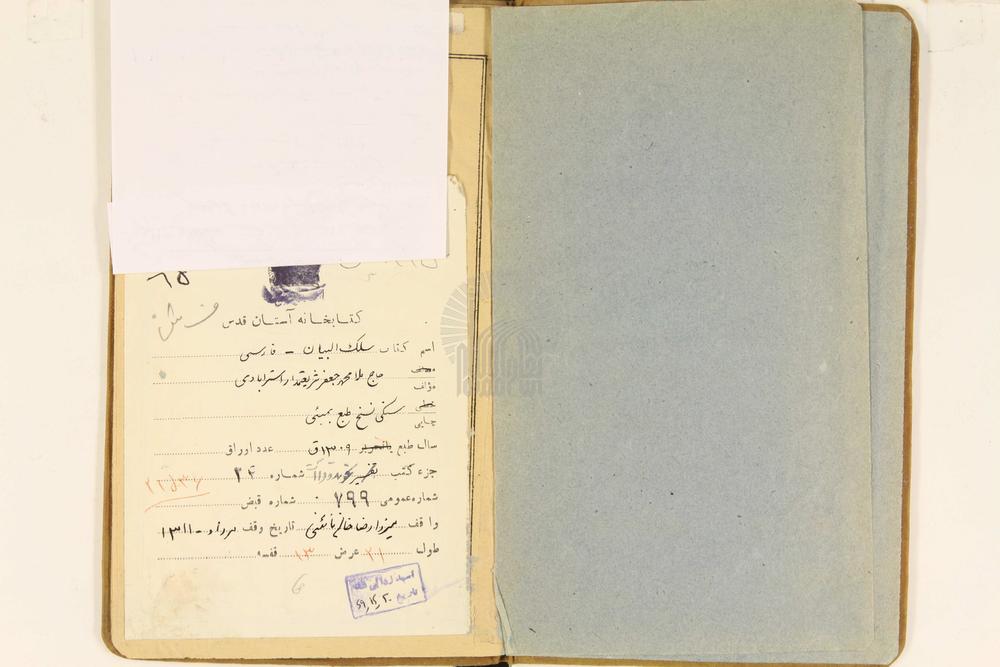 ۶۵
کتابخانه آستان قدس
اسم کتاب سلک البیان - فارسی
مؤلف حاج ملا محمد جعفر شریعتمدار استرابادی
خطی چاپی سنگی نسخ طبع بمبئی
سال طبع یا تحریر ۱۳۰۹ق عدد اوراق
جزء کتب تفسیر تجوید قرائت شماره ۳۴
شماره عمومی ۷۹۹ شماره قبض
واقف میرزا رضا خان نائینی تاریخ وقف مرداد - ۱۳۱۱
طول ۲۱ عرض ۱۳ قفسه
تاریخ